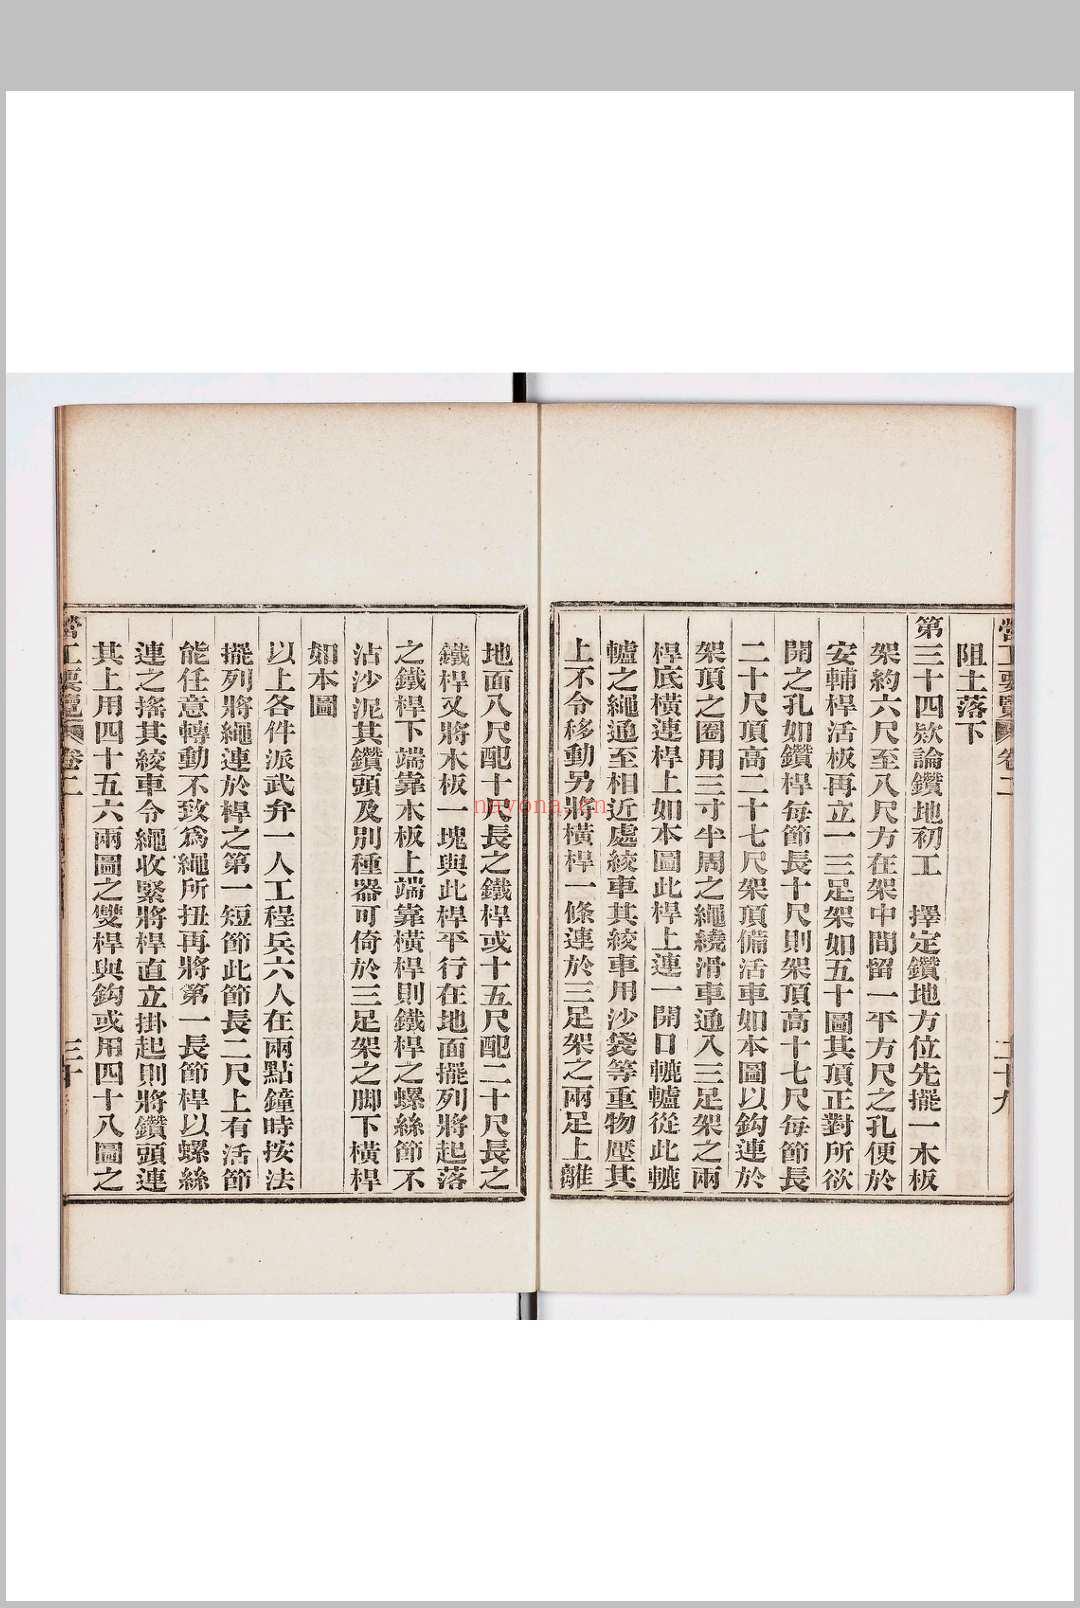 營工要覽 卷二 二十九
阻土落下
第三十四欵論鑽地初工 擇定鑽地方位先擺一木板
架約六尺至八尺方在架中間留一平方尺之孔便於
安輔桿活板再立一三足架如五十圖其頂正對所欲
開之孔如鑽桿每節長十尺則架頂高十七尺每節長
二十尺頂高二十七尺架頂備活車如本圖以鈎連於
架頂之圈用三寸半周之繩繞滑車通入三足架之兩
桿底橫連桿上如本圖此桿上連一開口轆轤從此轆
轤之繩通至相近處絞車其絞車用沙袋等重物壓其
上不令移動另將橫桿一條連於三足架之兩足上離
地面八尺配十尺長之鐵桿或十五尺配二十尺長之
鐵桿又將木板一塊與此桿平行在地面擺列將起落
之鐵桿下端靠木板上端靠橫桿則鐵桿之螺絲節不
沾沙泥其鑽頭及別種器可倚於三足架之脚下橫桿
如本圖
以上各件派武弁一人工程兵六人在兩點鐘時按法
擺列將繩連於桿之第一短節此節長二尺上有活節
能任意轉動不致爲繩所扭再將第一長節桿以螺絲
連之搖其絞車令繩收緊將桿直立掛起則將鑽頭連
其上用四十五六兩圖之雙桿與鈎或用四十八圖之
營工要覽 卷二 三十
nayona.cn